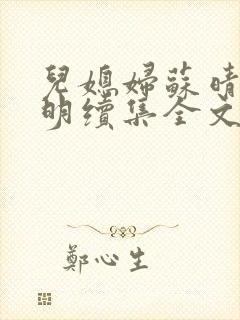 兒媳婦蘇晴
明續集全文
鄭心生